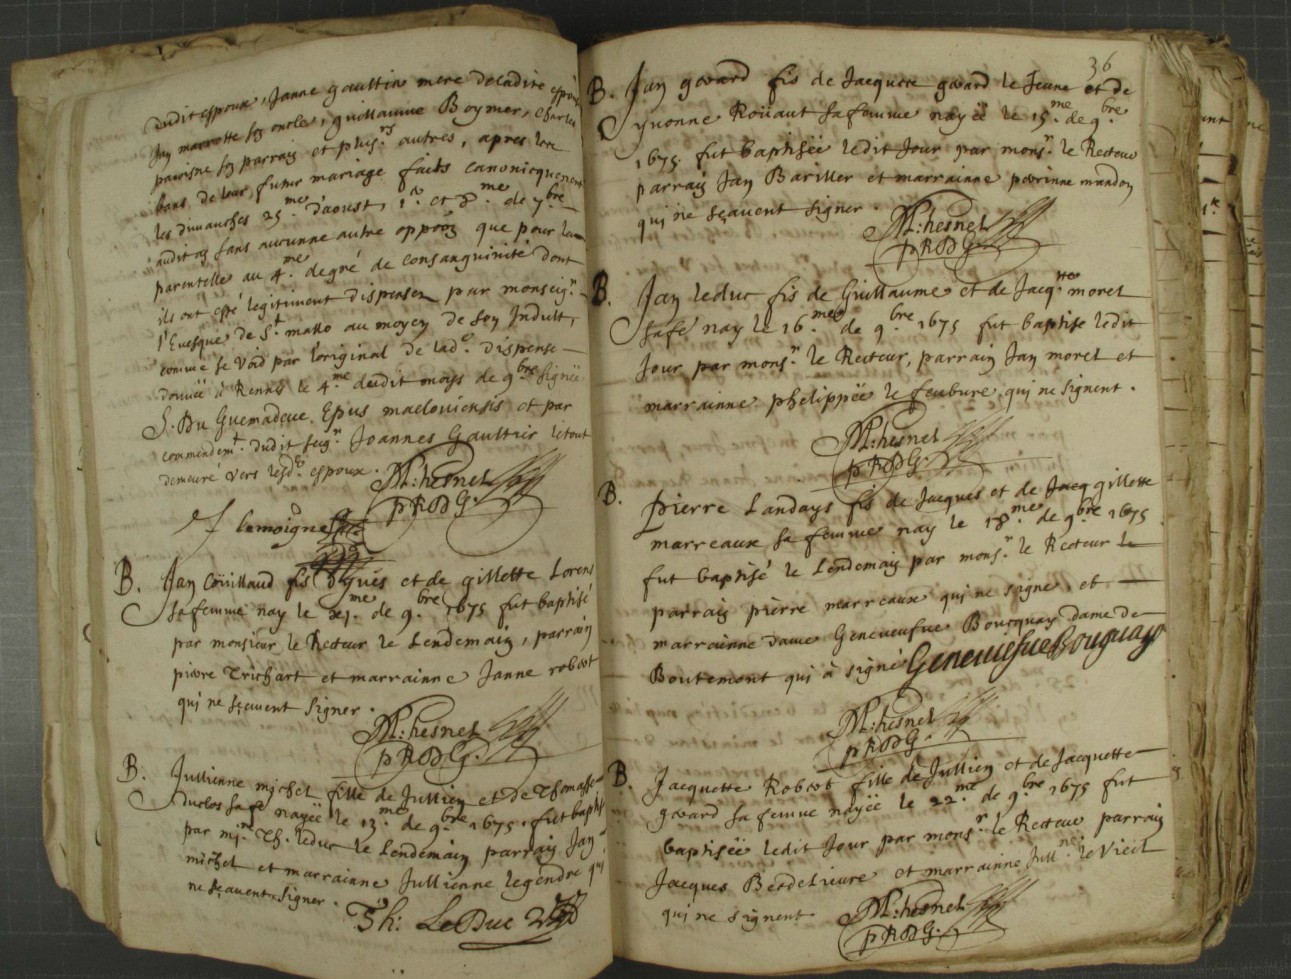 dudit espoux, Janne Gaultier mere de ladite espouse
Jan marrotte son oncle, Guillaume Boymer, Charles
parrain et plus.rs autres, apres les
bans de leur futur mariage faits canonicquement
les dimanches 25.me d'aoust, 1.er et 8.me de 7.bre
audit an sans aucunne autre opposon que pour la
parentelle au 4.me degré de consanguinité dont
ils ont esté legitiment dispensez par monseig.r
l'Euesque de S.t mallo au moyen de son Indult,
comme se void par l'original de lad.e dispense
donnée à Rennes le 4.me dudit moys de 9.bre signée
S. Du Guemadeuc. Epus macloviensis et par
commendem.t dudit seig.r Joannes Gaultier le tout
demeuré vers lesd.s espoux.
M: hesnel
pRdG.
lemoigne
B. Jan Coüillaud fis d'Yues et de gillette Lorens
sa femme nay le xj.me de 9.bre 1675 fut baptisé
par monsieur le Recteur le Lendemain, parrain
pierre Trichart et marrainne Janne robert
qui ne sçauent signer.
M: hesnel
pRdG.
B. Jullienne michel fille de Jullien et de Thomasse
duclos sa fe nayée le 13.me de 9.bre 1675. fut baptisée
par m.re Th. leduc le Lendemain parrain Jan
michel et marrainne Jullienne legendre qui
ne sçauent signer.
Th: LeDuc
36
B. Jan gerard fis de Jacques gerard le Jeune et de
yvonne Roüaut sa femme nayée le 15.me de 9.bre
1675. fut baptisée ledit Jour par mons.r le Recteur
parrain Jan Bariller et marrainne perrinne mandon
qui ne sçauent signer.
M: hesnel
pRdG.
B. Jan leduc fis de Guillaume et de Jacq.tte morel
sa fe nay le 16.me de 9.bre 1675 fut baptise ledit
Jour par mons.r le Recteur, parrain Jan morel et
marrainne phelippée le feubure. qui ne signent.
M: hesnel
pRdG.
B. pierre Landays fis de Jacques et de Jacq gillette
marreaux sa femme nay le 18.me de 9.bre 1675
fut baptisé le Lendemain par mons.r le Recteur le
parrain pierre marreaux qui ne signe, et
marrainne dame Geneuefue Bourguay dame de
Boutemont qui à signé Geneuiefue Bourguay
M: hesnel
pRdG.
B. Jacquette Robert fille de Jullien et de Jacquette
gerard sa femme nayée le 22.me de 9.bre 1675 fut
baptisée ledit Jour par mons.r le Recteur parrain
Jacques Berdelieure et marrainne Jull.ne le Vieil
qui ne signent
M: hesnel
pRdG.